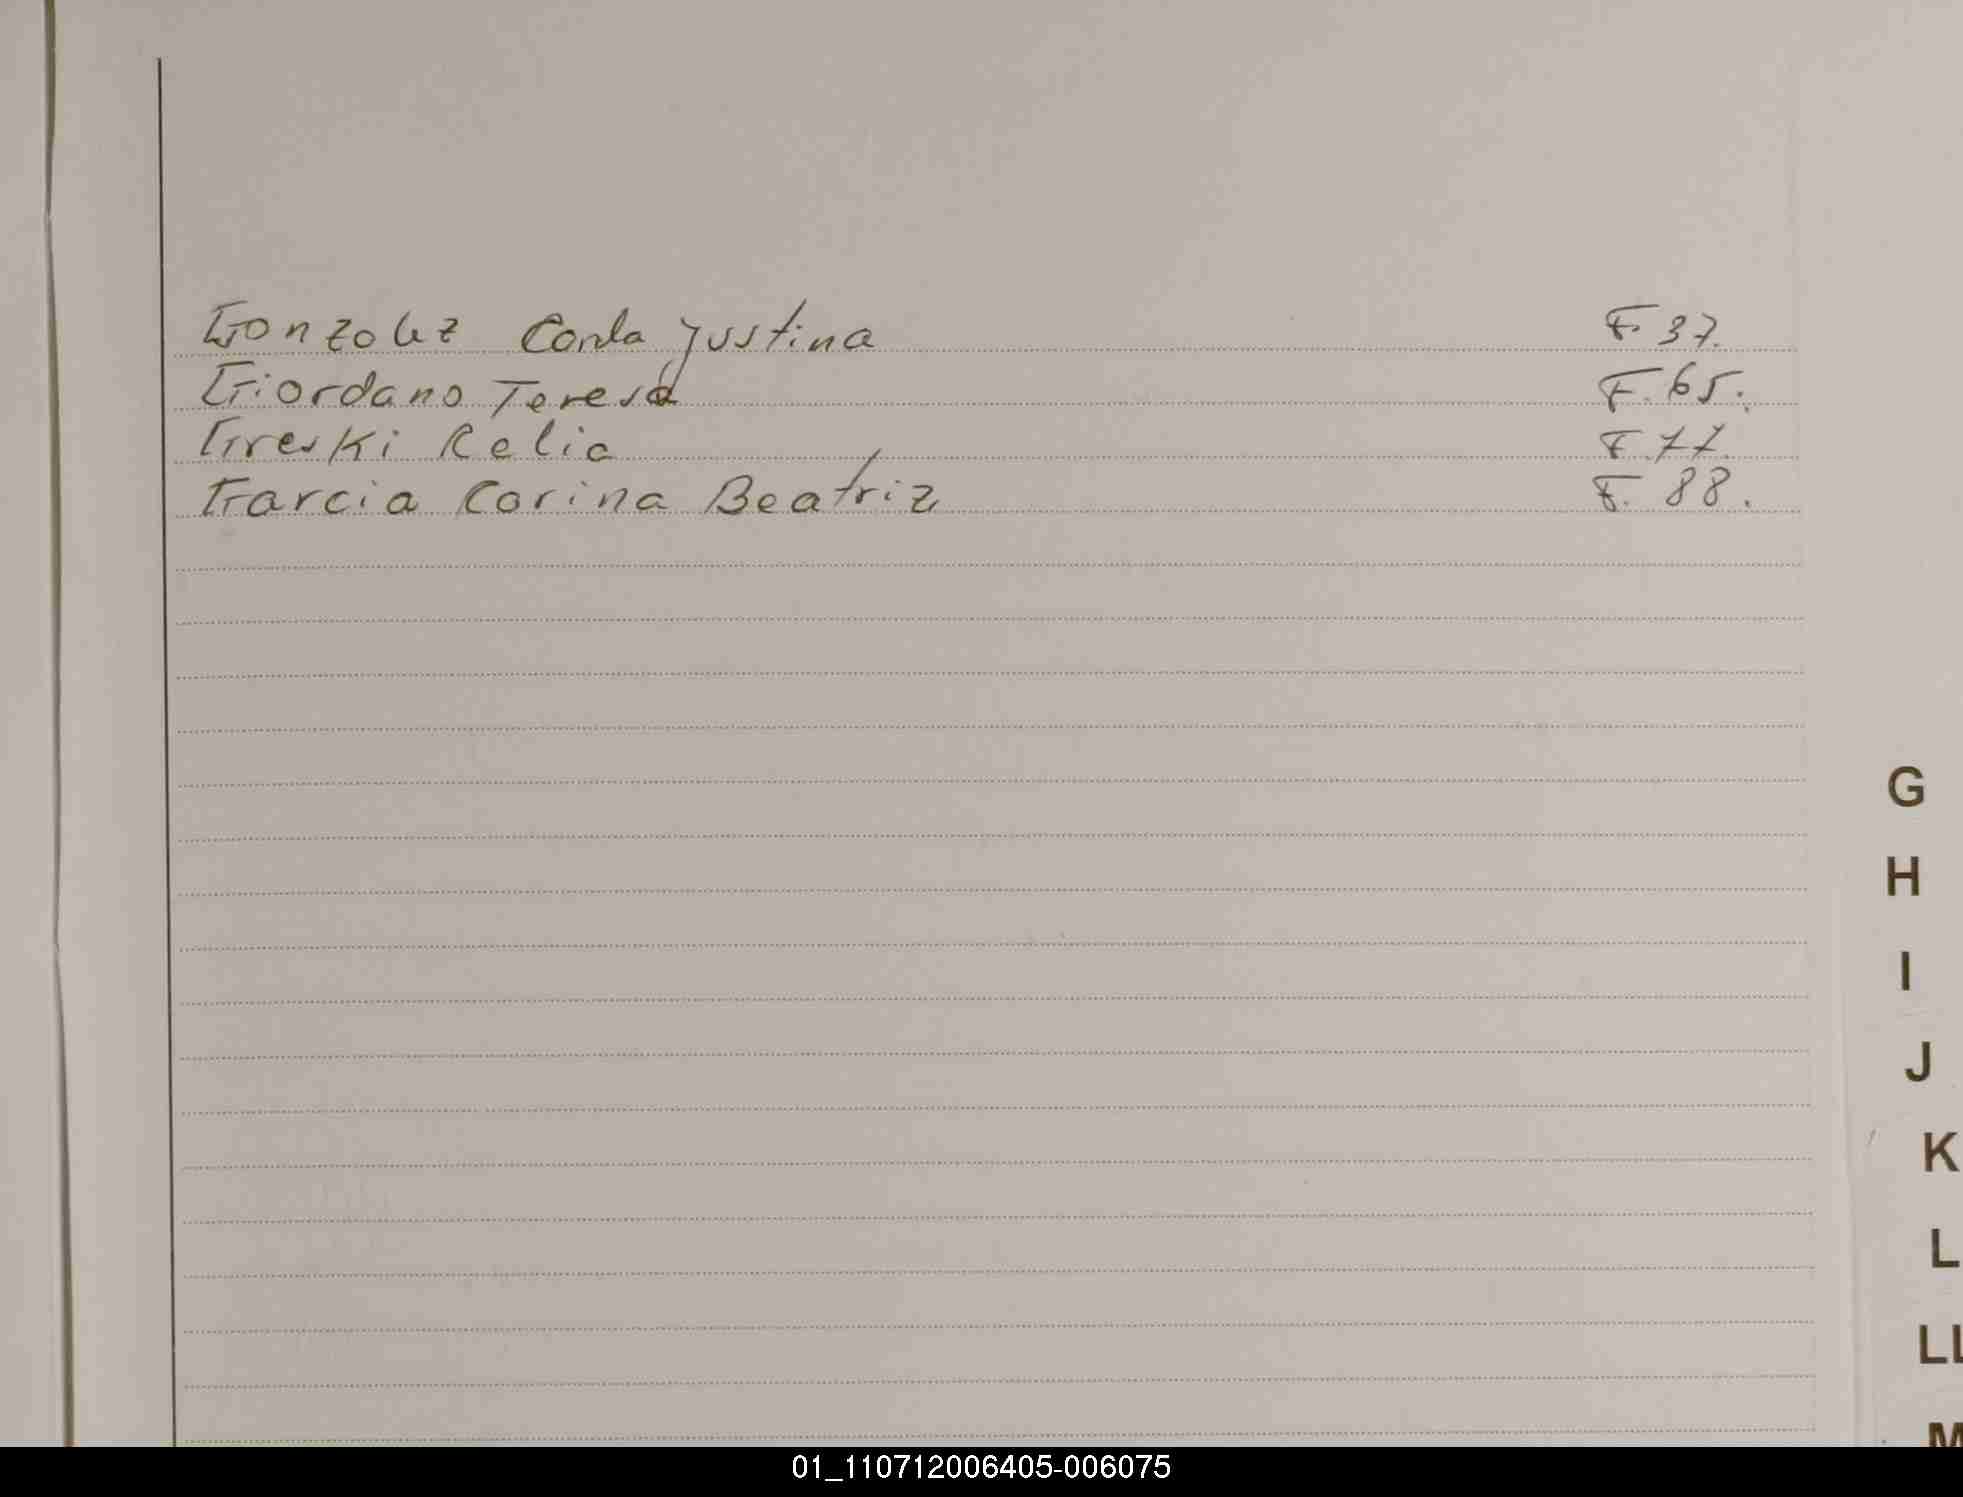 Gonzalez Carla Justina F. 37.
Giordano Teresa F. 65.
Greski Relia F. 77.
Garcia Corina Beatriz F. 88.
G
H
I
J
K
L
LL
M
01_110712006405-006075